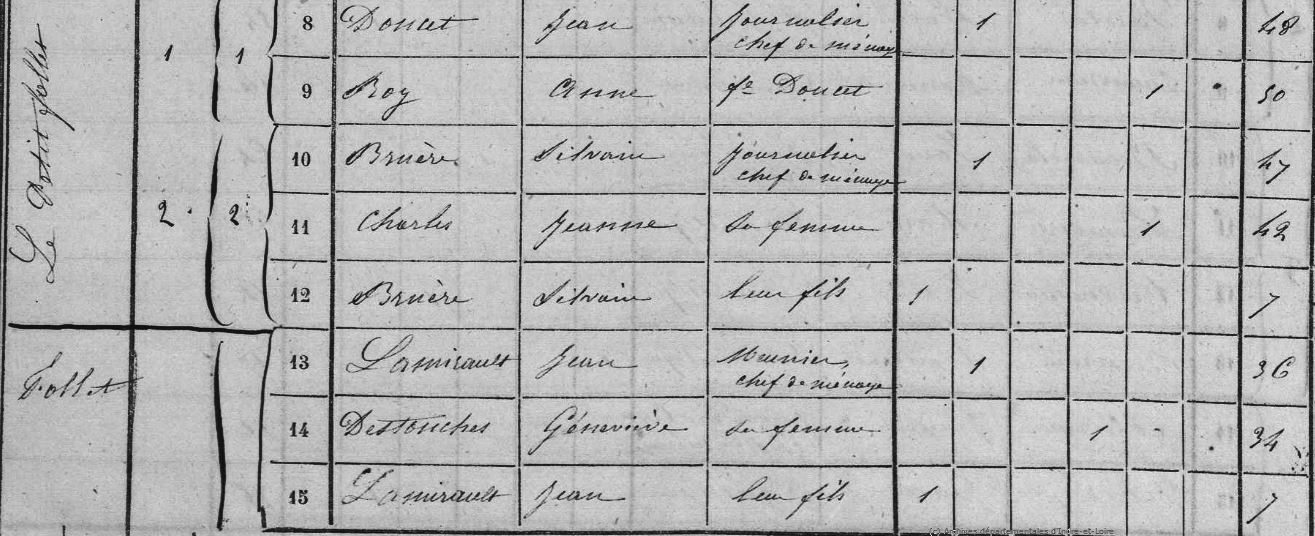 Le Petit follet
1 1 8 Doucet Jean journalier 1 48
chef de ménage
9 Roy Anne fe Doucet 1 50
10 Bruère Silvain journalier 1 47
chef de ménage
2 2 11 Charles Jeanne sa femme 1 42
12 Bruère Silvain leur fils 1 7
Follet
13 Lamirault Jean Meunier 1 36
chef de ménage
14 Destouches Géneviève sa femme 1 34
15 Lamirault Jean leur fils 1 7
(c) Archives départementales d'Indre-et-Loire